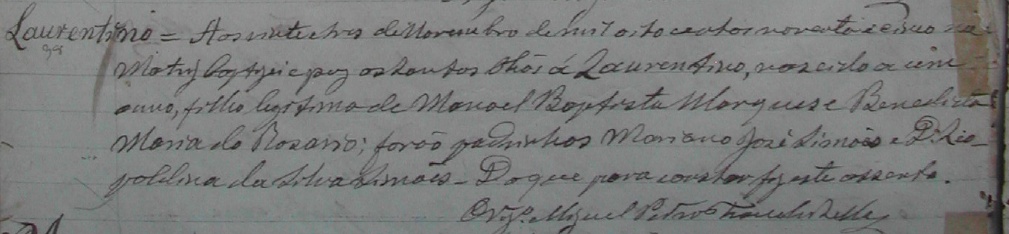 Laurentino = Aos vinte e tres de Novembro de mil oitocentos noventa e cinco na
Matriz baptizei e puz os Santos Oleos á Laurentino, nascido a um
anno, filho legitimo de Manoel Baptista Marques e Benedicta
Maria do Rosario; forão padrinhos Mariano José Simões e D. Leo-
poldina da Silva Simões - Do que para constar fiz este assento.
Miguel Pedro